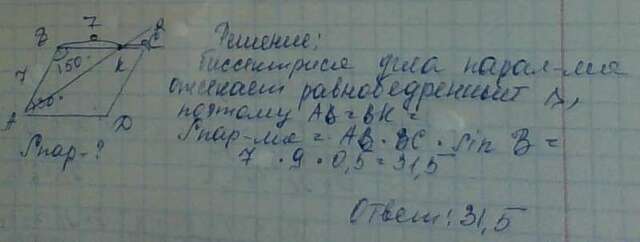 7
B C
7 150° K
A 30° D
Sпар-?
Решение:
биссектриса угла парал-ма
отсекает равнобедренный △,
поэтому AB = BK =
Sпар-ма = AB · BC · sin B =
7 · 9 · 0,5 = 31,5
Ответ: 31,5